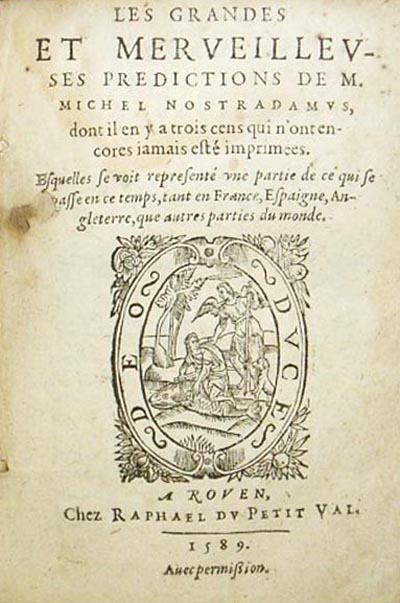 LES GRANDES
ET MERVEILLEV-
SES PREDICTIONS DE M.
MICHEL NOSTRADAMVS,
dont il en y a trois cens qui n'ont en-
cores iamais esté imprimees.
Esquelles se voit representé vne partie de ce qui se
passe en ce temps, tant en France, Espaigne, An-
gleterre, que autres parties du monde.
DEO DVCE
A ROVEN,
Chez RAPHAEL DV PETIT VAL.
1589.
Auec permission.